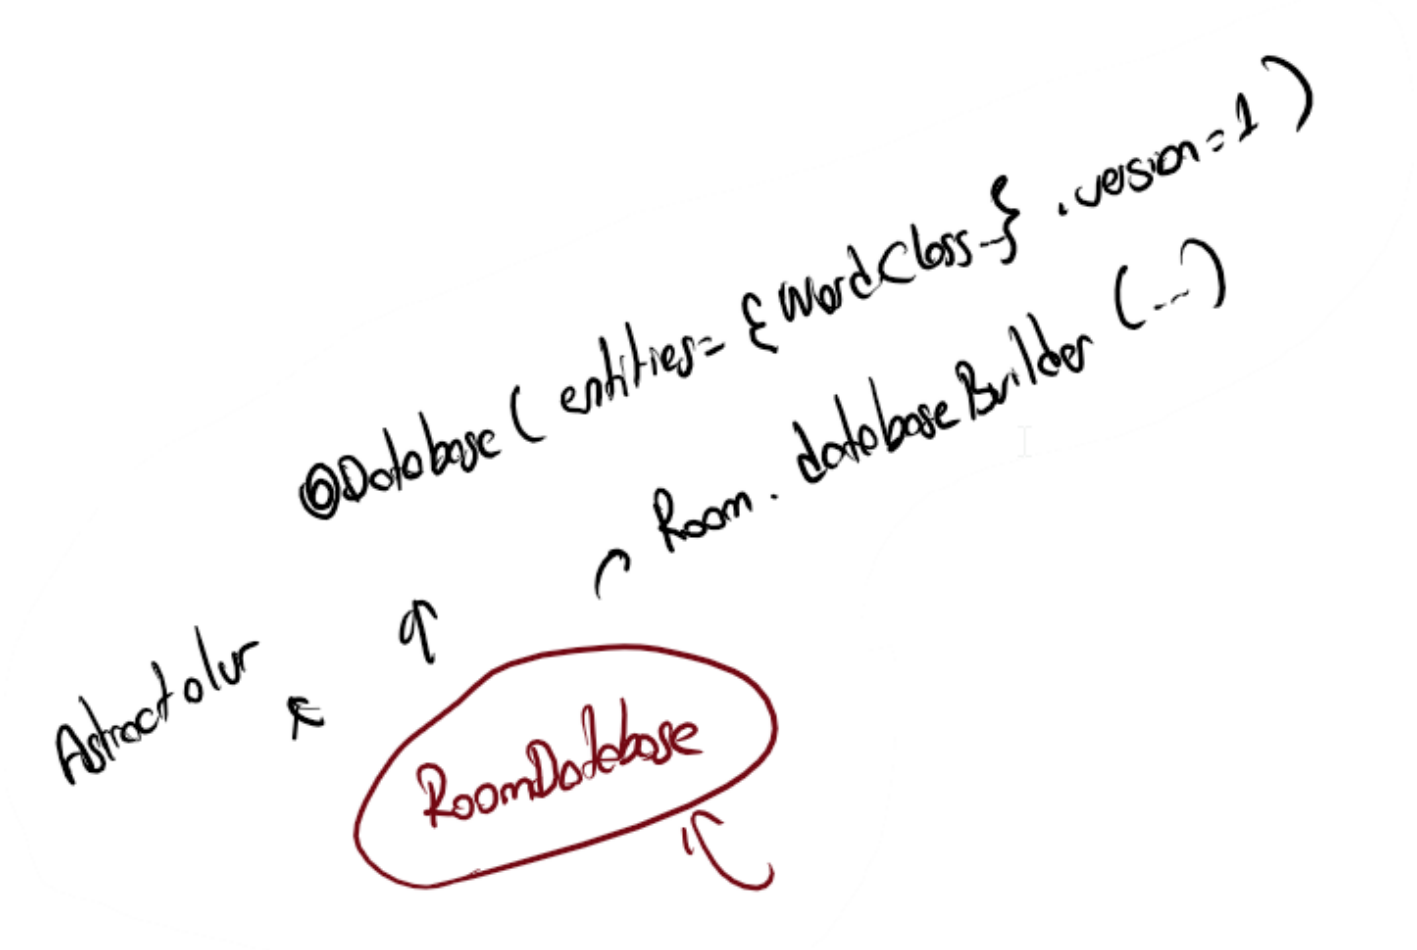 @Database ( entities = { WordClass... } , version = 1 )
Room . databaseBuilder (...)
Astract olur
RoomDatabase